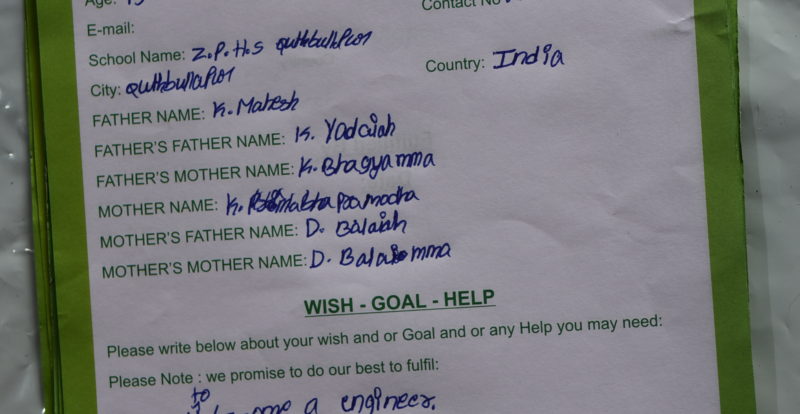 Age: 15
Contact No
E-mail:
School Name: Z.P.H.S Quthbullapur
City: Quthbullapur
Country: India
FATHER NAME: K. Mahesh
FATHER'S FATHER NAME: K. Yadaiah
FATHER'S MOTHER NAME: K. Bhagyamma
MOTHER NAME: K.
MOTHER'S FATHER NAME: D. Balaiah
MOTHER'S MOTHER NAME: D. Balaiomma
WISH - GOAL - HELP
Please write below about your wish and or Goal and or any Help you may need:
Please Note : we promise to do our best to fulfil:
to
a engineer.